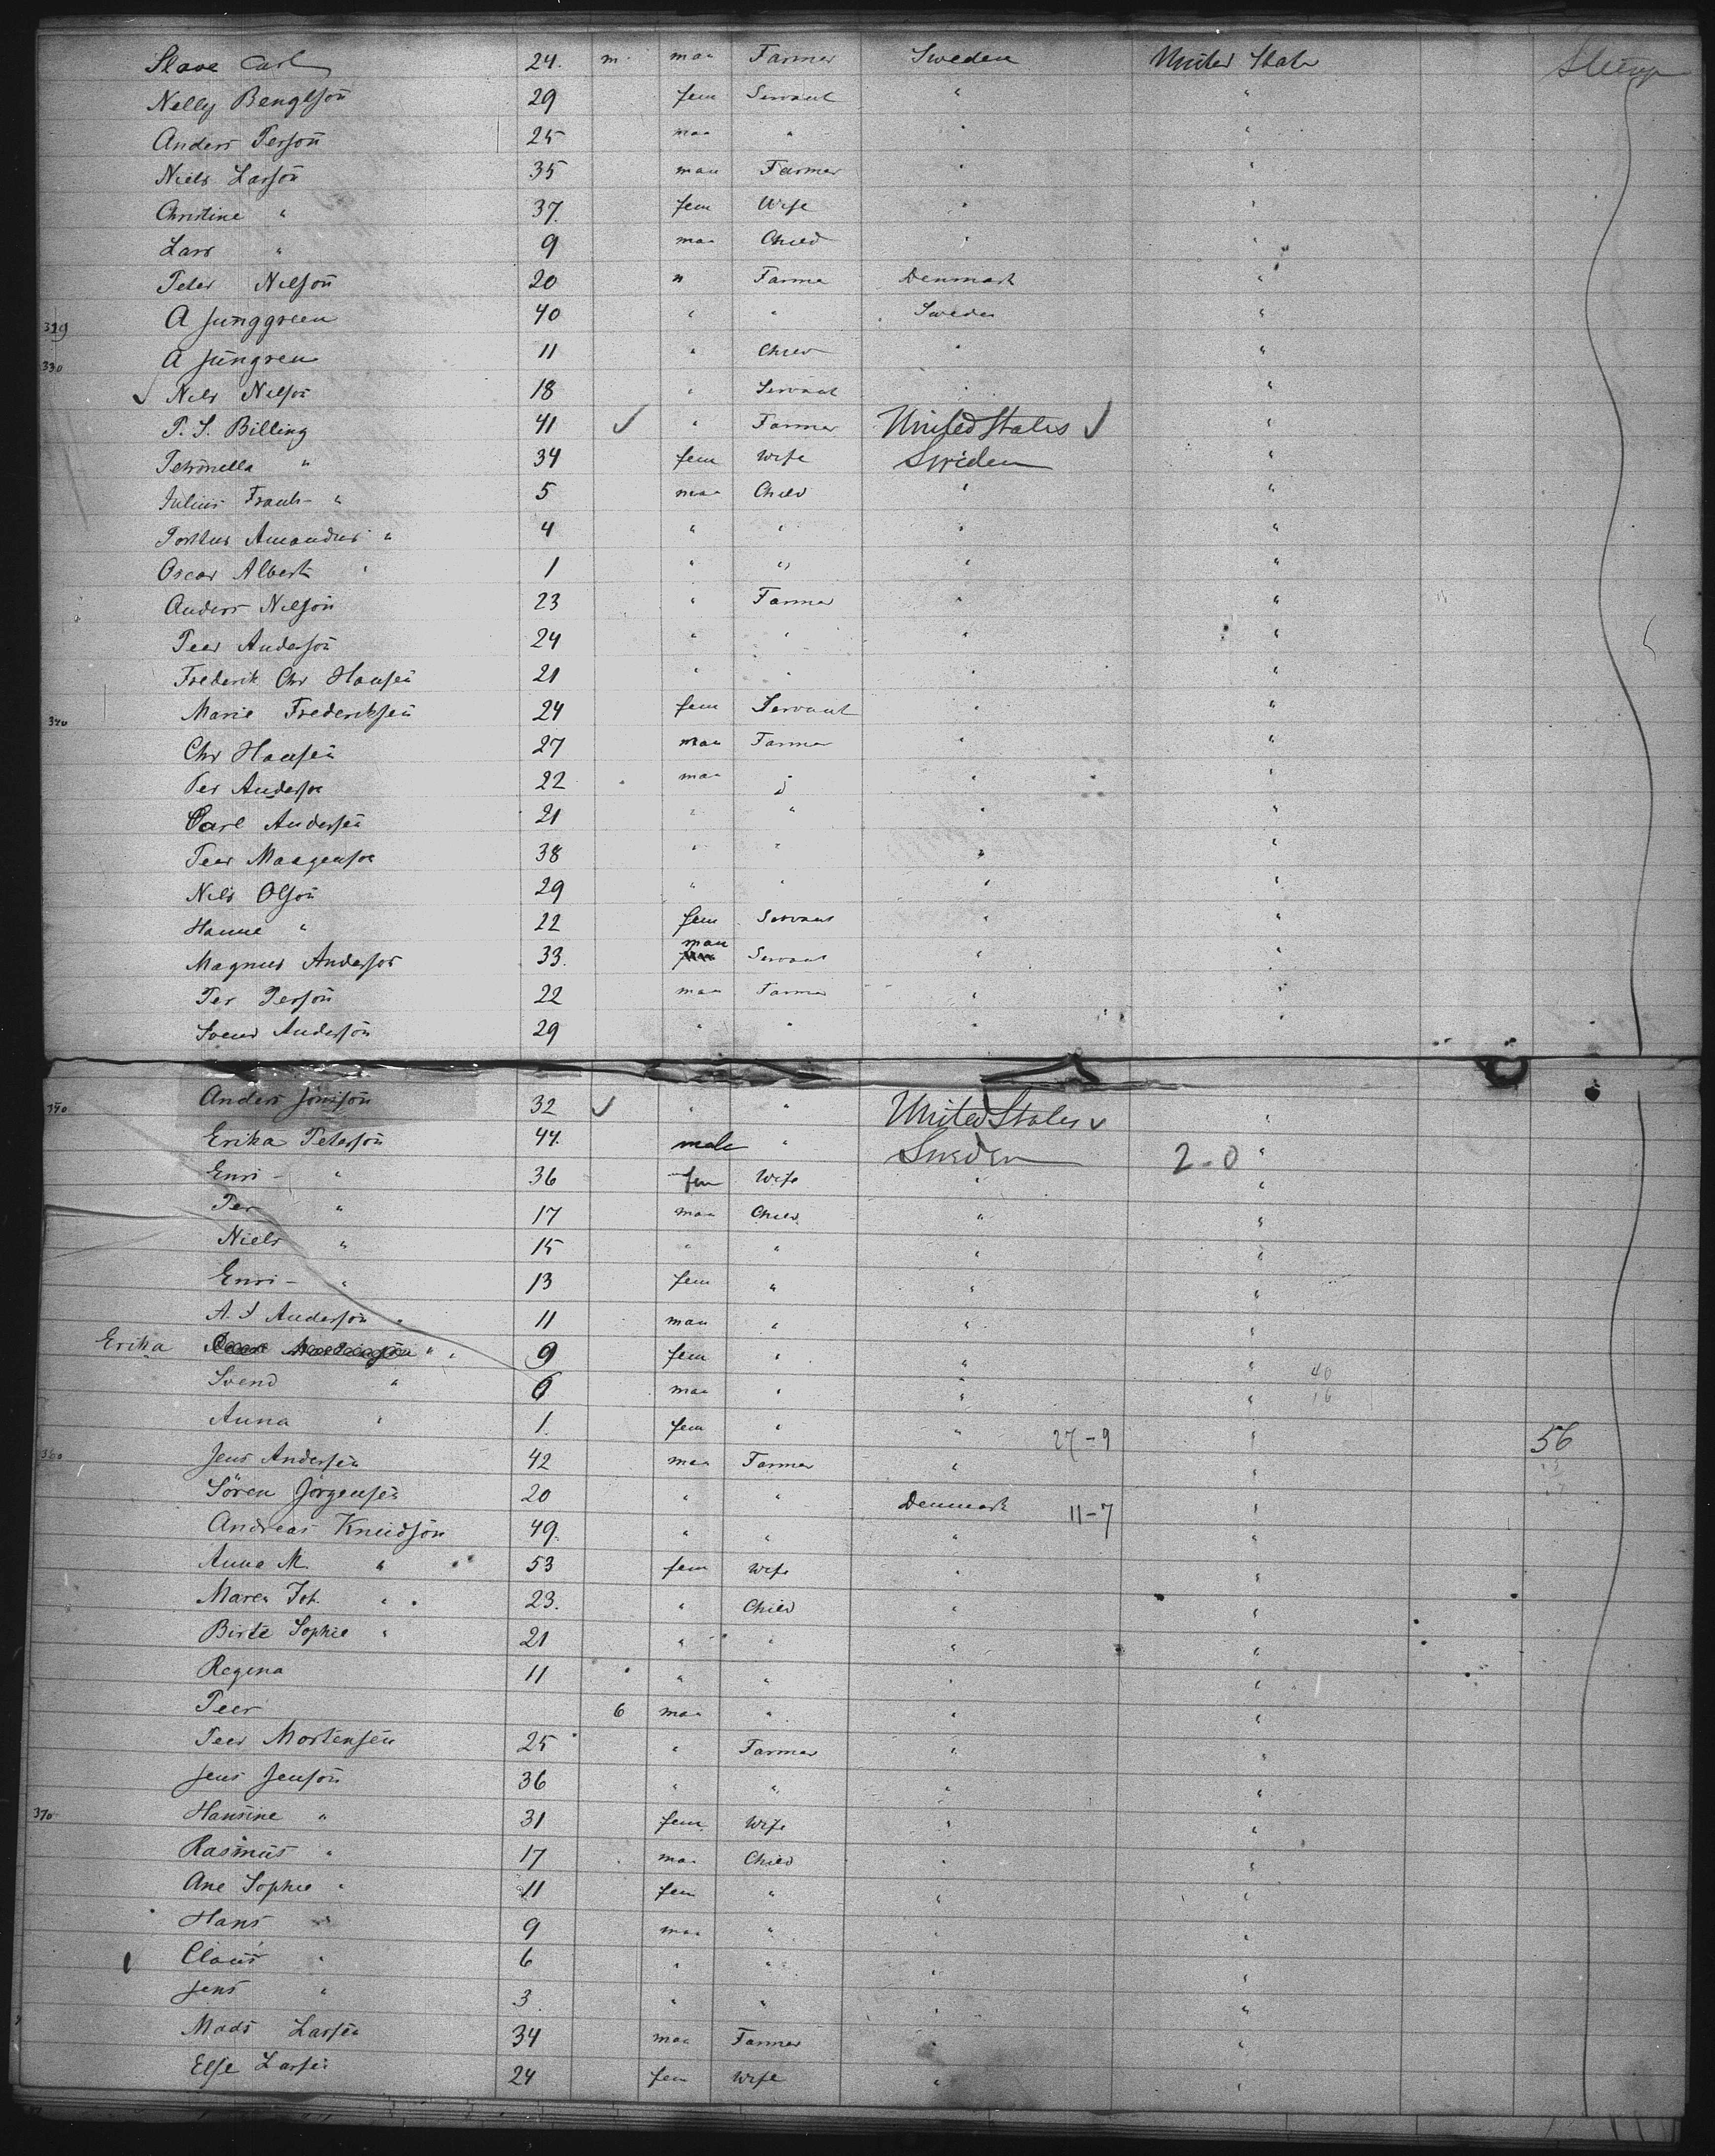 Slave Carl 24. m. man Farmer Sweden United State
Nelly Bengtson 29 fem Servant " "
Anders Person 25 man " " "
Niels Larson 35 man Farmer " "
Christine " 37. fem Wife " "
Lars " 9 man Child " "
Peter Nelson 20 " Farmer Denmark "
319 A Junggreen 40 " " Sweden "
330 A Jungren 11 " Child " "
✓ Nels Nelson 18 " Servant " "
P. S. Billing 41 ✓ " Farmer United States ✓ "
Petronella " 34 fem Wife Sweden "
Julius Frank " 5 man Child " "
Amandus " 4 " " " "
Oscar Albert " 1 " " " "
Anders Nelson 23 " Farmer " "
Peer Anderson 24 " " " "
Frederik Chr Hansen 21 " " " "
340 Marie Frederiksen 24 fem Servant " "
Chr Hansen 27 man Farmer " "
Per Anderson 22 man " " "
Carl Andersen 21 " " " "
Peer Maagenson 38 " " " "
Nels Olson 29 " " " "
Hanne " 22 fem Servant " "
Magnus Anderson 33. man Servant " "
Per Person 22 man Farmer " "
Svend Anderson 29 " " " "
350 Anders Jonsson 32 ✓ " " United States ✓ "
Erika Peterson 44. male " Sweden 2-0 "
Ensi - " 36 fem Wife " "
Per " 17 man Child " "
Niels " 15 " " " "
Ensi - " 13 fem " " "
A. S Anderson " 11 man " " "
Erika " 9 fem " " " 40
Svend " 6 man " " " 16
Anna " 1. fem " " 27-9 " 56
360 Jens Andersen 42 man Farmer " "
Sören Jörgensen 20 " " Denmark 11-7 "
Andreas Knudson 49. " " " "
Anna M. " 53 fem Wife " "
Maren Joh. " 23. " Child " "
Birte Sophie " 21 " " " "
Regina 11 " " " "
Peer 6 man " " "
Peer Mortensen 25 " Farmer " "
Jens Jenson 36 " " " "
370 Hansine " 31 fem Wife " "
Rasmus " 17 man Child " "
Ane Sophie " 11 fem " " "
Hans " 9 man " " "
Claus " 6 " " " "
Jens " 3 " " " "
Mads Larsen 34 man Farmer " "
Else Larsen 24 fem Wife " "